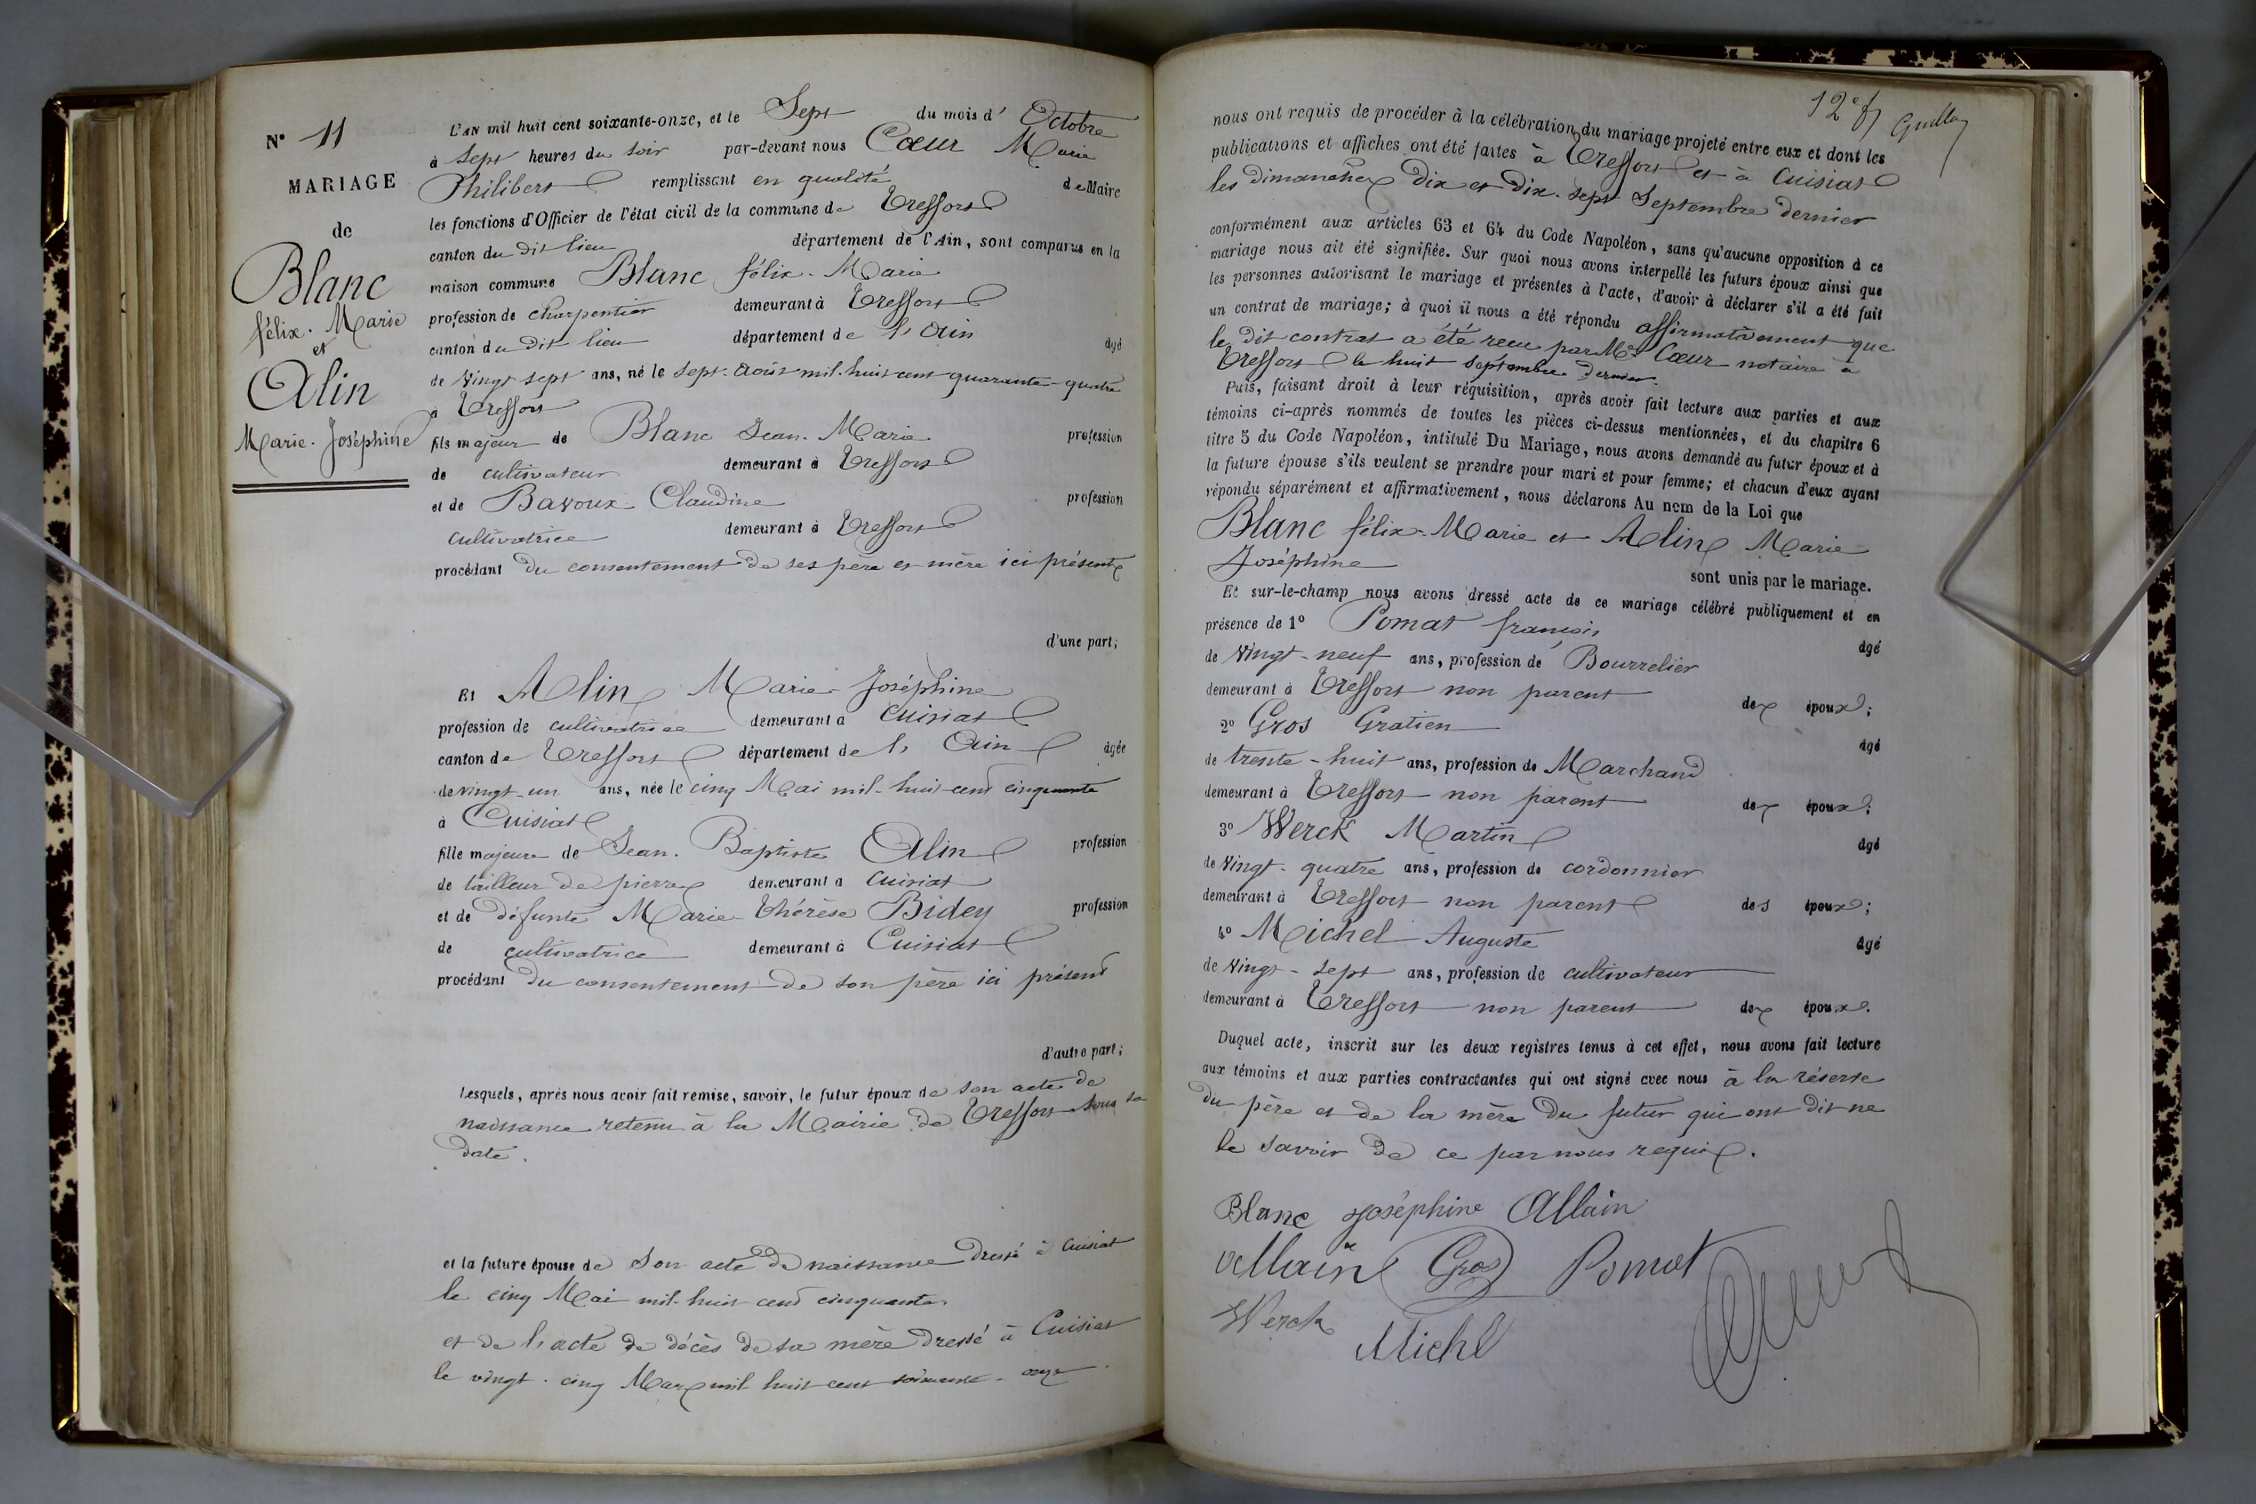 N° 11
MARIAGE
de
Blanc
félix. Marie
et
Alin
Marie. Joséphine
L'AN mil huit cent soixante-onze, et le Sept du mois d' Octobre
à Sept heures du soir par-devant nous Cœur Marie
Philibert remplissant en qualité de Maire
les fonctions d'Officier de l'état civil de la commune de Treffort
canton du dit lieu département de l'Ain, sont comparus en la
maison commune Blanc félix. Marie
profession de charpentier demeurant à Treffort
canton du dit lieu département de l'Ain âgé
de Vingt-sept ans, né le sept. Août mil-huit cent quarante-quatre
à Treffort
fils majeur de Blanc Jean. Marie profession
de cultivateur demeurant à Treffort
et de Bavoux Claudine profession
cultivatrice demeurant à Treffort
procédant du consentement de ses père et mère ici présents
d'une part;
Et Alin Marie Joséphine
profession de cultivatrice demeurant à Cuisiat
canton de Treffort département de l'Ain âgée
de vingt-un ans, née le cinq Mai mil-huit cent cinquante
à Cuisiat
fille majeure de Jean. Baptiste Alin profession
de tailleur de pierres demeurant à Cuisiat
et de défunte Marie Thérèse Bidey profession
de cultivatrice demeurant à Cuisiat
procédant du consentement de son père ici présent
d'autre part;
Lesquels, après nous avoir fait remise, savoir, le futur époux de son acte de
naissance retenu à la Mairie de Treffort sous sa
date.
et la future épouse de son acte de naissance dressé à Cuisiat
le cinq Mai mil-huit cent cinquante
et de l'acte de décès de sa mère dressé à Cuisiat
le vingt-cinq Mars mil huit cent soixante-onze.
12e f
nous ont requis de procéder à la célébration du mariage projeté entre eux et dont les
publications et affiches ont été faites à Treffort et à Cuisiat
les dimanches dix et dix-sept Septembre dernier
conformément aux articles 63 et 64 du Code Napoléon, sans qu'aucune opposition à ce
mariage nous ait été signifiée. Sur quoi nous avons interpellé les futurs époux ainsi que
les personnes autorisant le mariage et présentes à l'acte, d'avoir à déclarer s'il a été fait
un contrat de mariage; à quoi il nous a été répondu affirmativement que
le dit contrat a été recu par Me Cœur notaire à
Treffort le huit septembre dernier.
Puis, faisant droit à leur réquisition, après avoir fait lecture aux parties et aux
témoins ci-après nommés de toutes les pièces ci-dessus mentionnées, et du chapitre 6
titre 5 du Code Napoléon, intitulé Du Mariage, nous avons demandé au futur époux et à
la future épouse s'ils veulent se prendre pour mari et pour femme; et chacun d'eux ayant
répondu séparément et affirmativement, nous déclarons Au nom de la Loi que
Blanc félix-Marie et Alin Marie
Joséphine sont unis par le mariage.
Et sur-le-champ nous avons dressé acte de ce mariage célébré publiquement et en
présence de 1° Pomat françois âgé
de Vingt-neuf ans, profession de Bourrelier
demeurant à Treffort non parent des époux;
2° Gros Gratien âgé
de trente-huit ans, profession de Marchand
demeurant à Treffort non parent des époux;
3° Werck Martin âgé
de Vingt-quatre ans, profession de cordonnier
demeurant à Treffort non parent des époux;
4° Michel Auguste âgé
de Vingt-sept ans, profession de cultivateur
demeurant à Treffort non parent des époux.
Duquel acte, inscrit sur les deux registres tenus à cet effet, nous avons fait lecture
aux témoins et aux parties contractantes qui ont signé avec nous à la réserve
du père et de la mère du futur qui ont dit ne
le savoir de ce par nous requis.
Blanc Joséphine Allain
Allain Gros Pomat
Werck
Michel